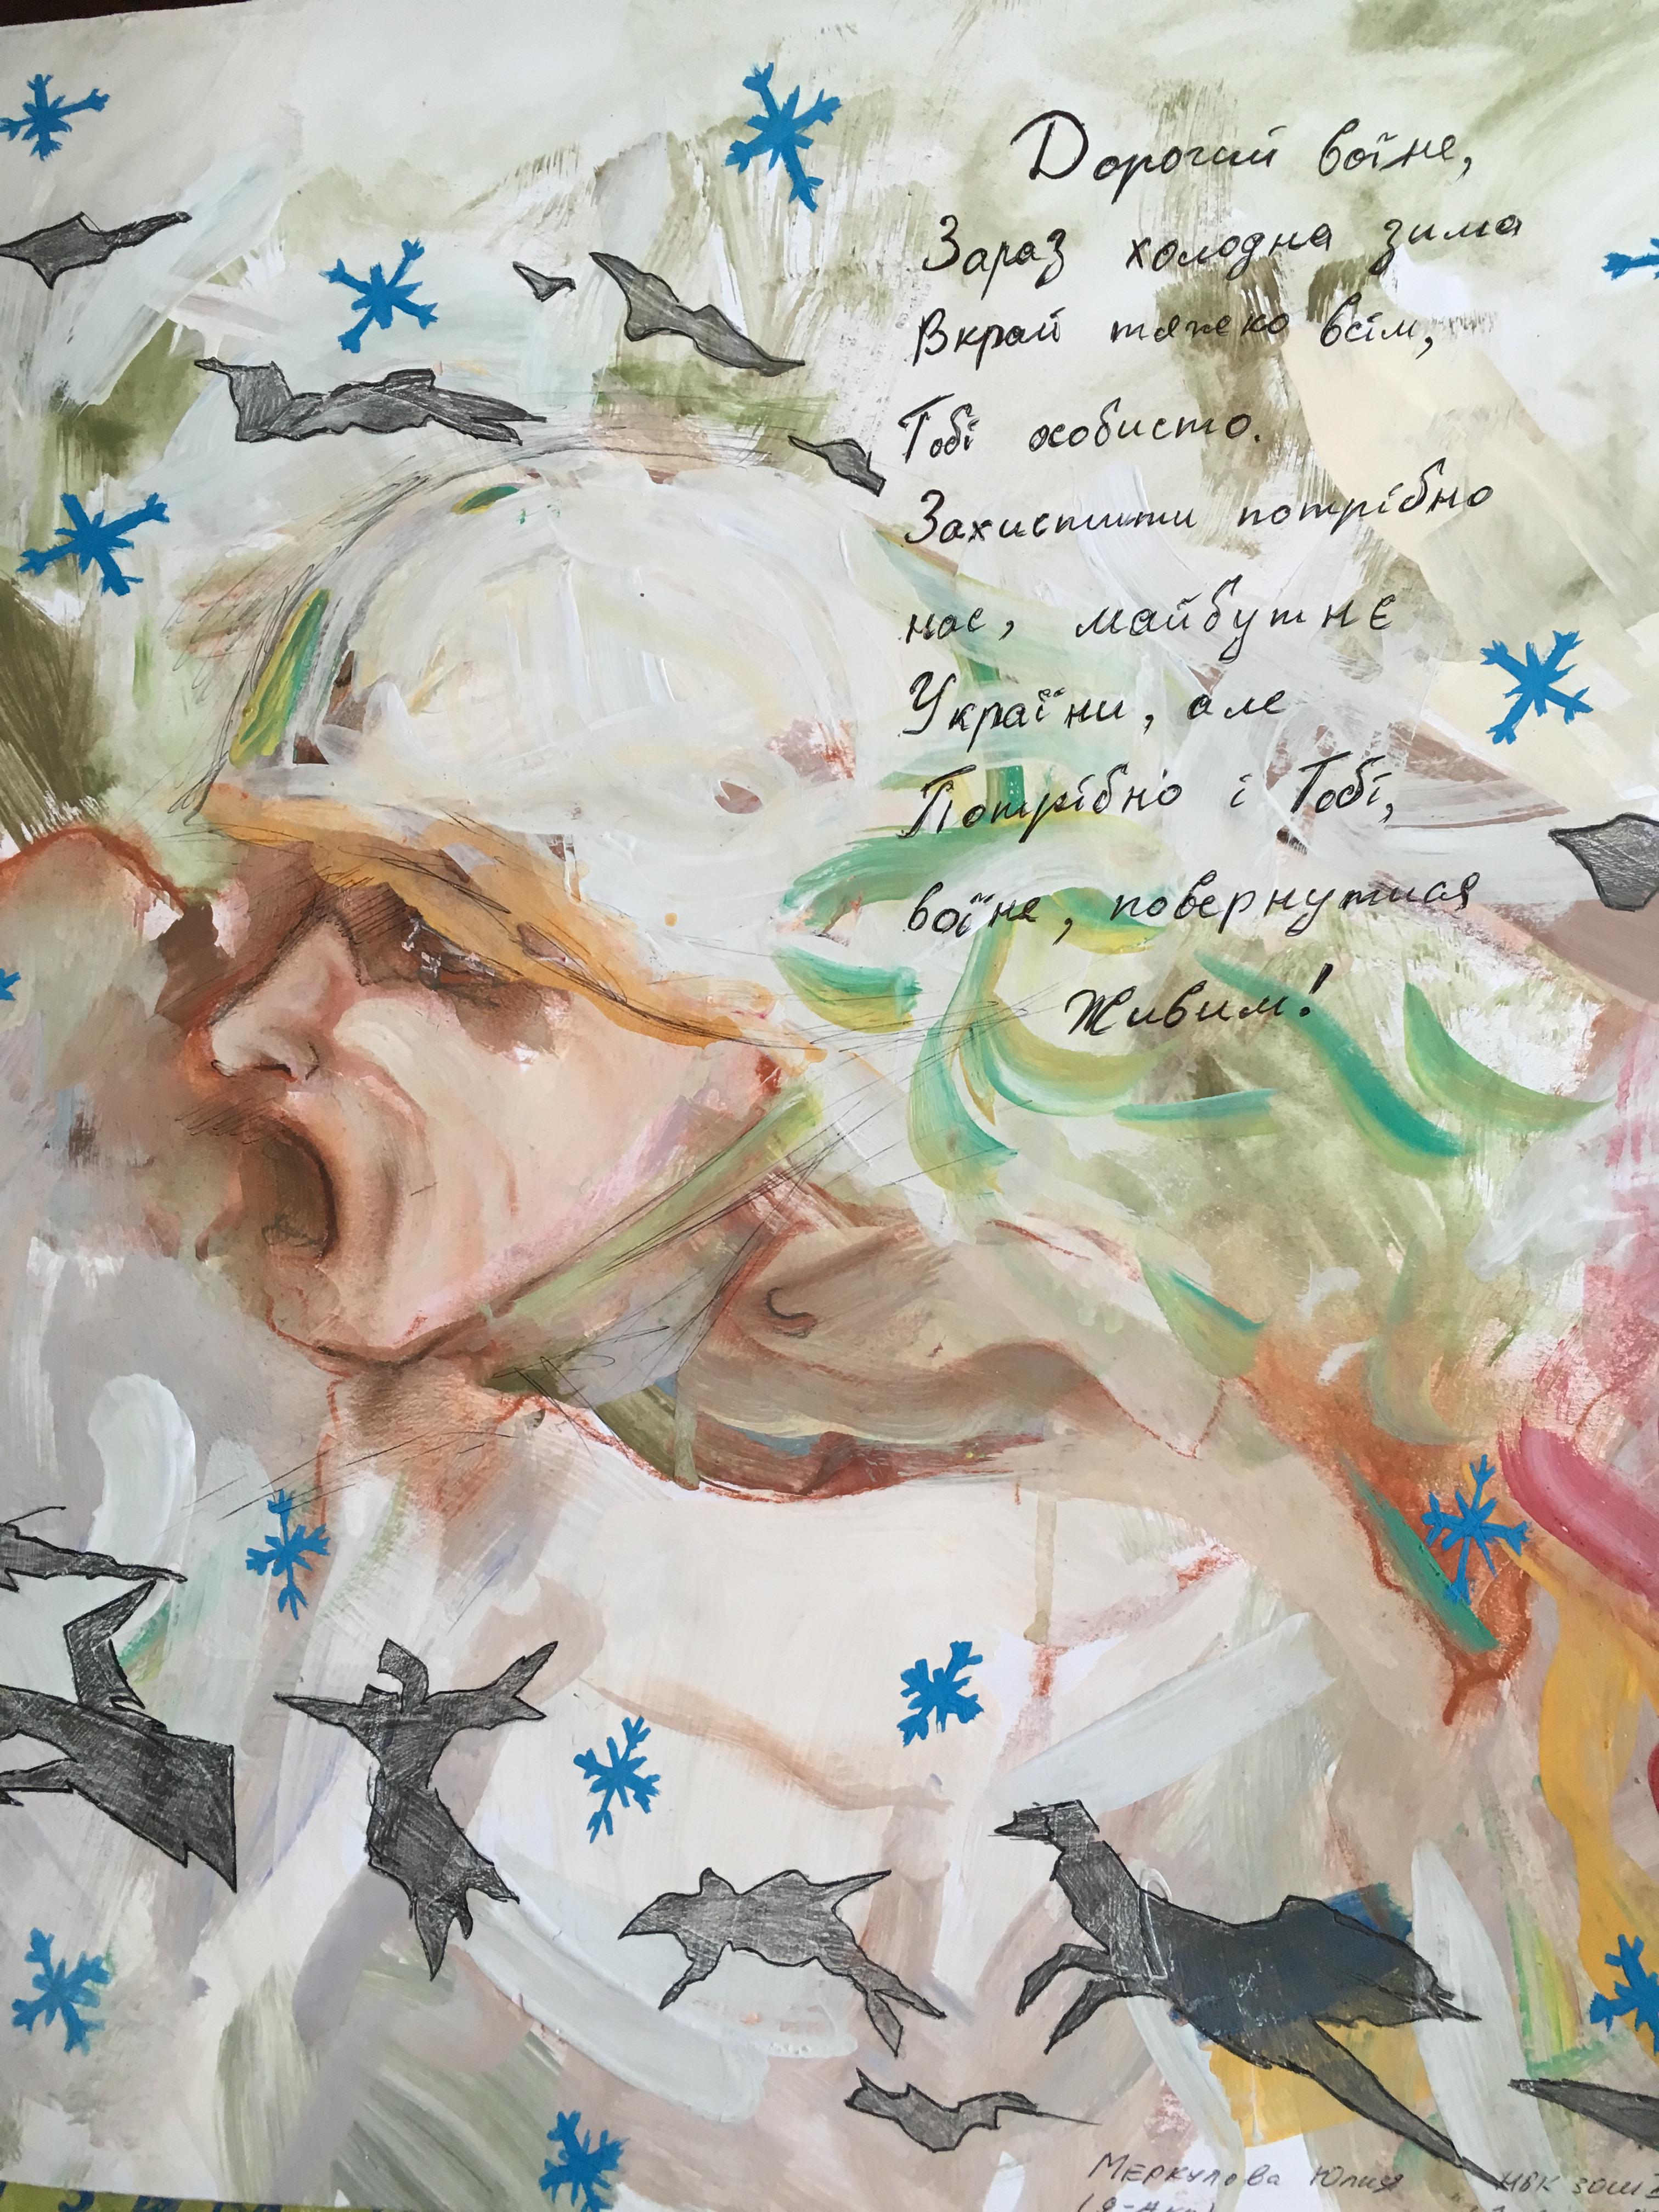 Дорогий воїне,
Зараз холодна зима
Вкрай тяжко всім,
Тобі особисто.
Захистити потрібно
нас, майбутнє
України, але
Потрібно і Тобі,
воїне, повернутися
Живим!
Меркулова Юлия НВК ЗОШ